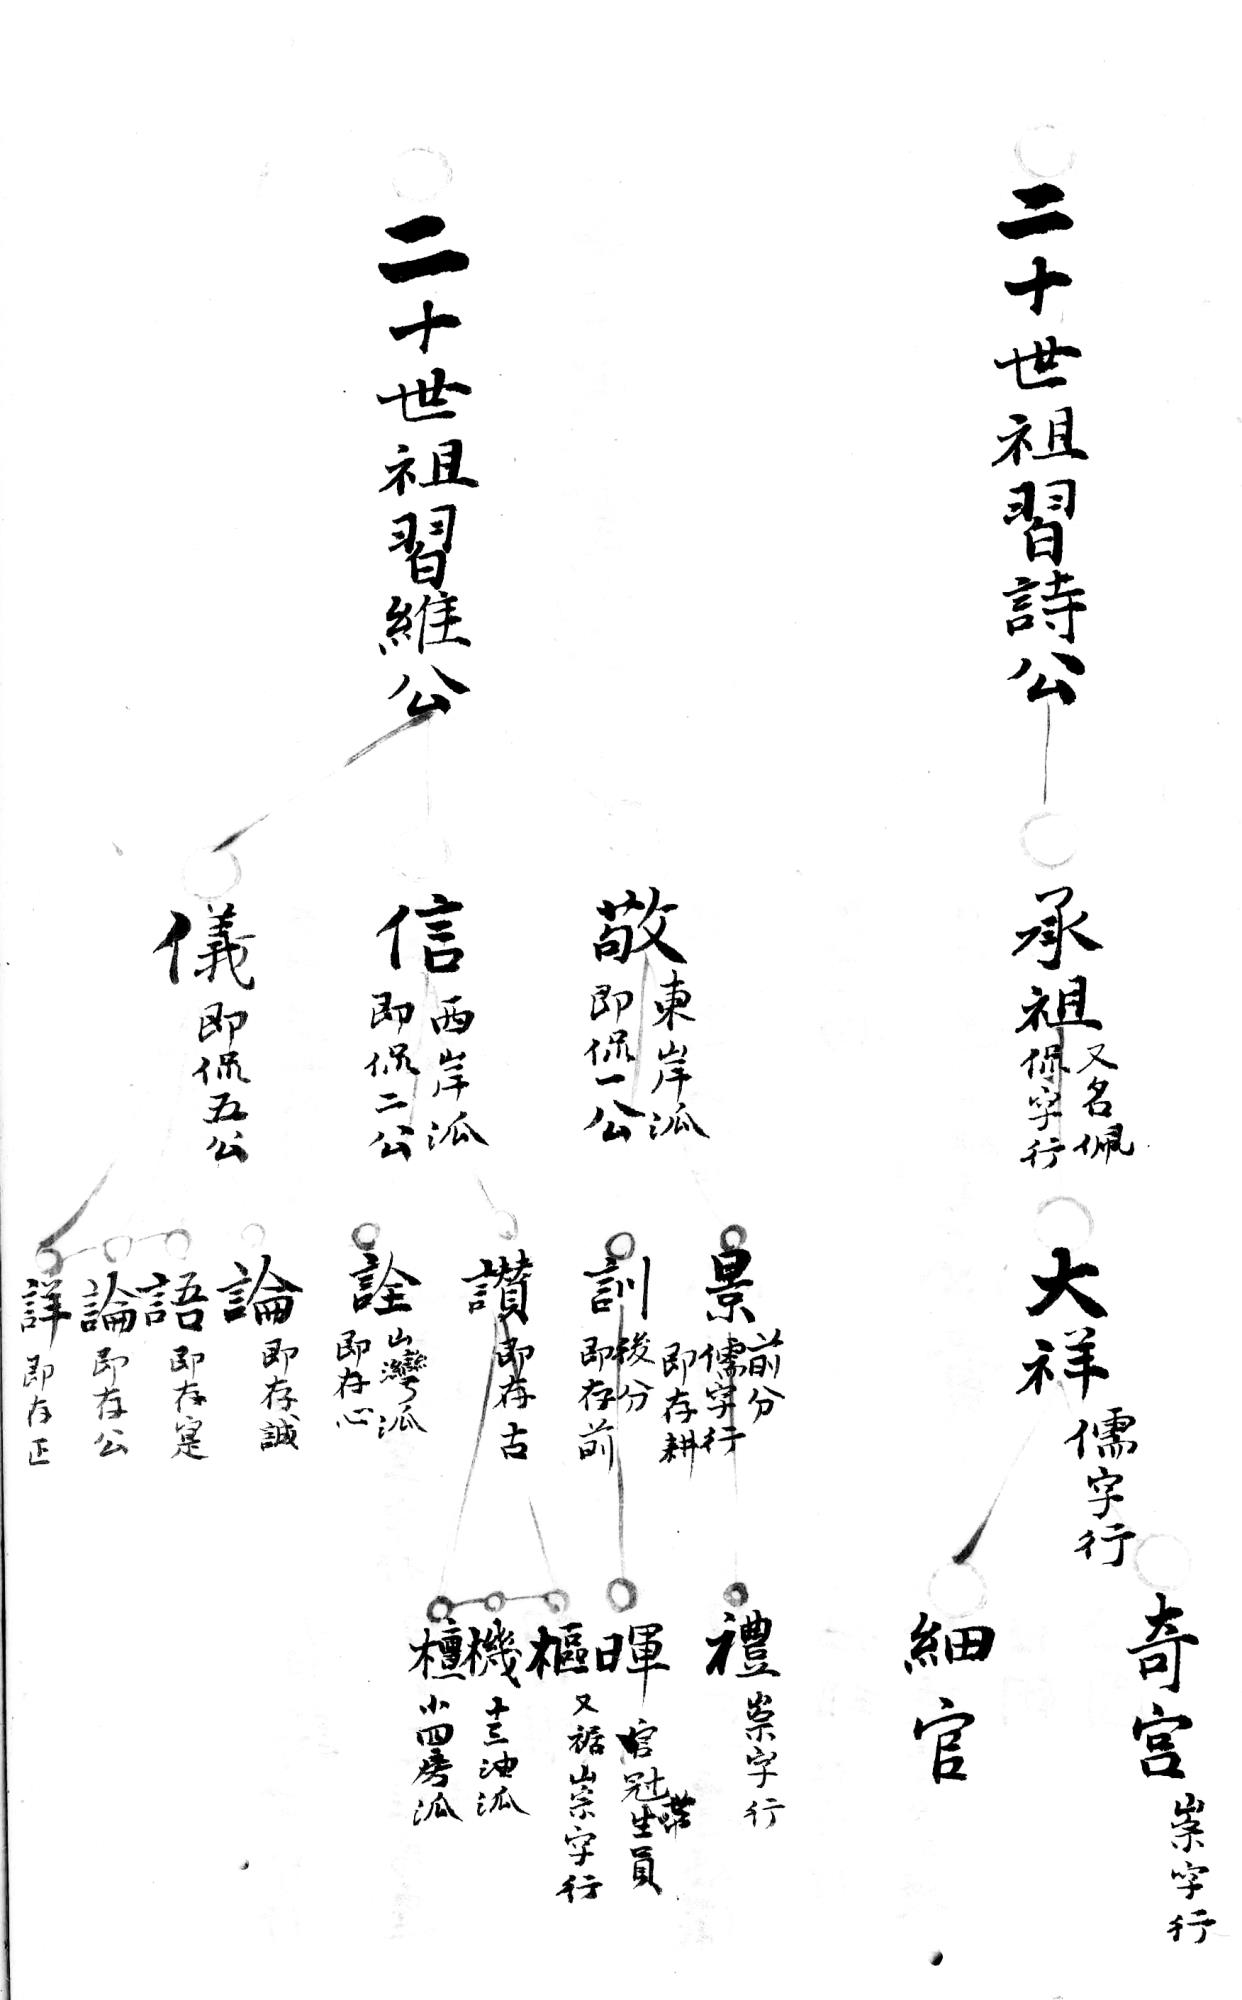 二十世祖習詩公
承祖
又名佩
侃字行
大祥
儒字行
奇宫
崇字行
細官
二十世祖習維公
敬
東岸派
即侃一公
信
西岸派
即侃二公
儀
即侃五公
景
前分
儒字行
即存耕
訓
後分
即存前
讃
即存古
詮
山灣派
即存心
論
即存誠
語
即存寔
論
即存公
詳
即存正
禮
崇字行
暉
冠帶
生員
樞
又裾
崇字行
機
油派
檀
小四房派